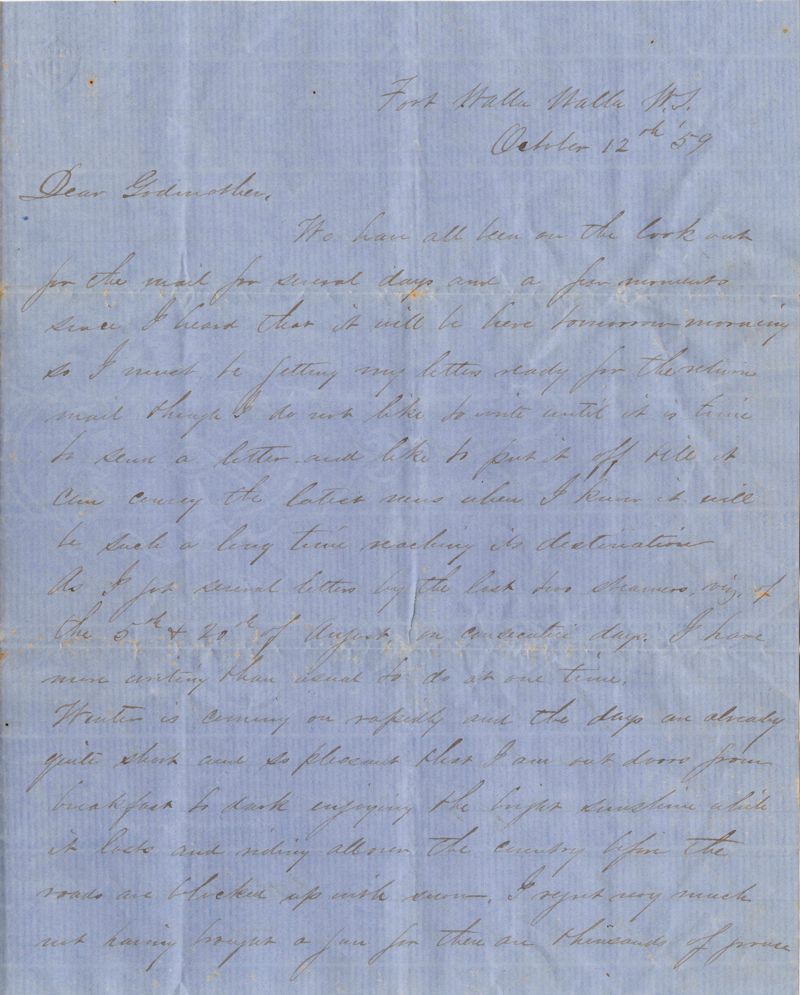 Fort Walla Walla W.T.
October 12th '59
Dear Godmother,
We have all been on the look out
for the mail for several days and a few moments
since I heard that it will be here tomorrow morning
so I must be getting my letters ready for the return
mail though I do not like to write until it is time
to send a letter and like to put it off till it
can convey the latest news when I know it will
be such a long time reaching its destination
As I got several letters by the last two steamers, viz. of
the 5th & 20th of August, on consecutive days. I have
more writing than usual to do at one time.
Winter is coming on rapidly and the days are already
quite short and so pleasant that I am out doors from
breakfast to dark enjoying the bright sunshine while
it lasts and riding all over the country before the
roads are blocked up with snow. I regret very much
not having brought a gun for there are thousands of grouse